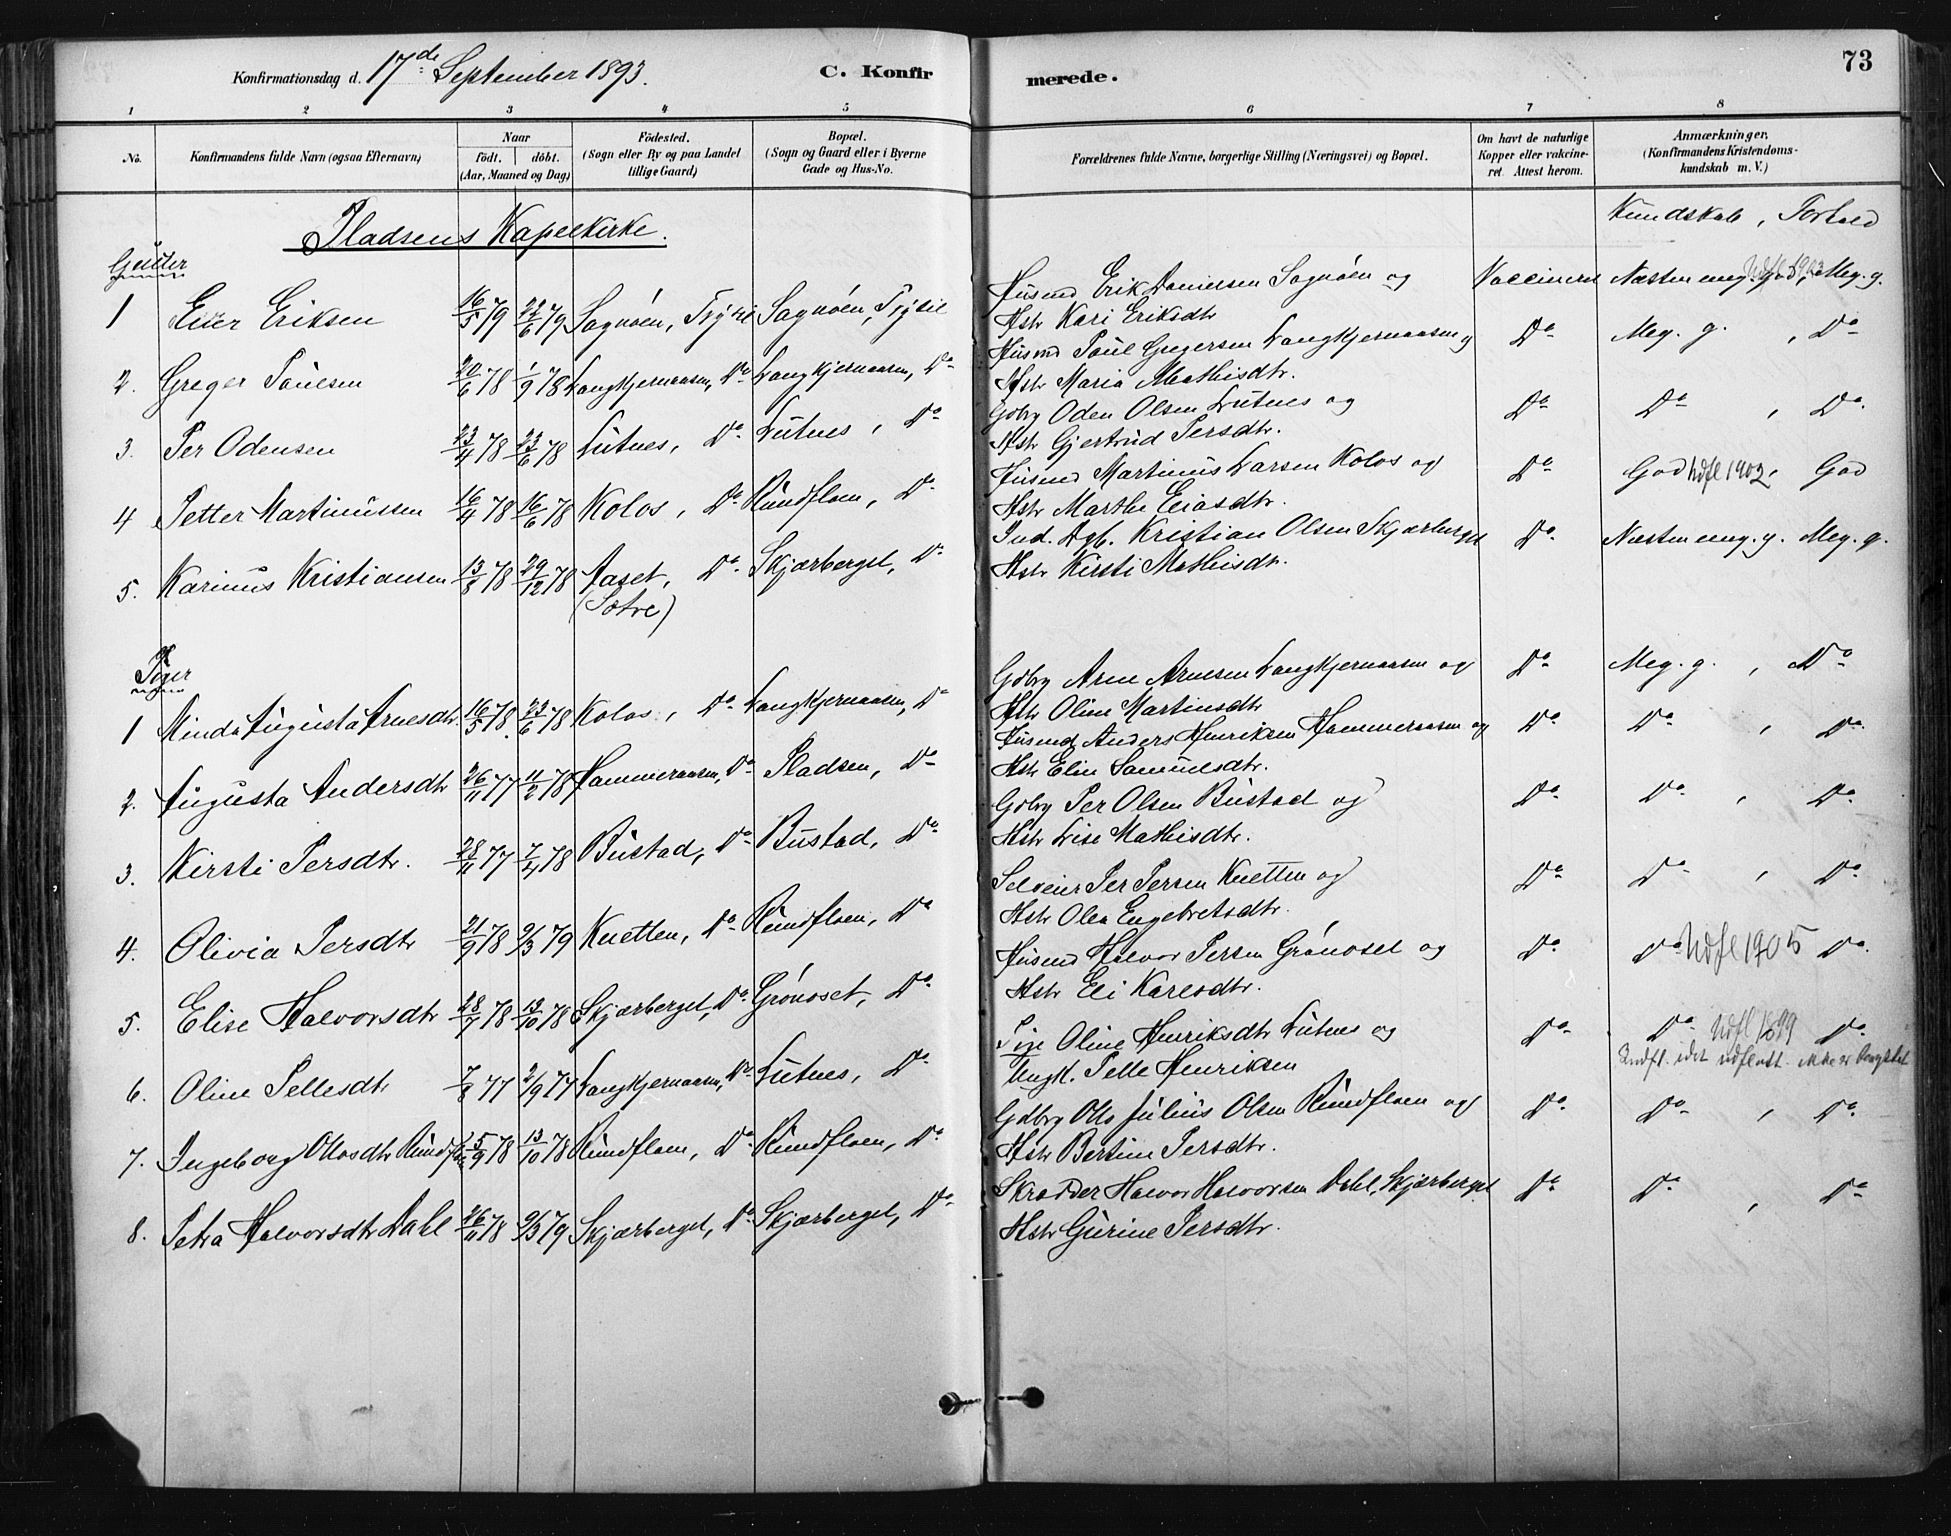 73
Konfirmationsdag d. 17de September 1893. C. Konfirmerede.
1 2 3 4 5 6 7 8
No. Konfirmandens fulde Navn (ogsaa Efternavn) Naar födt. döbt. (Aar, Maaned og Dag) Födested. (Sogn eller By og paa Landet tillige Gaard) Bopæl. (Sogn og Gaard eller i Byerne Gade og Hus-No. Forældrenes fulde Navne, borgerlige Stilling (Næringsvei) og Bopæl. Om havt de naturlige Kopper eller vakcineret Attest herom. Anmærkninger, (Konfirmandens Kristendomskundskab m. V.)
Kundskab, Forhold
Pladsens Kapelkirke.
Gutter
1 Eilier Eriksen 16/5 79 22/6 79 Sagnöen, Trysil Sagnöen, Trysil Husmd Erik Danielsen Sagnöen og Vaccineret Næsten meg. god, Meg. g.
Hstr Kari Eriksdtr
2. Greger Paulsen 20/6 78 1/9 78 Langkjernaasen, Do Langkjernaasen, Do Husmd Paul Gregersen Langkjernaasen og Do Meg. g., Do
Hstr Maria Mathisdtr.
3. Per Odensen 23/4 78 23/6 78 Lutnes, Do Lutnes, Do Gdbrg Oden Olsen Lutnes og Do Do, Do
Hstr Gjertrud Persdtr.
4 Petter Martinussen 16/4 78 16/6 78 Kolos, Do Rundfloen, Do Husmd Martinus Larsen Kolos og Do God Udfl 1902, God
Hstr Marthe Eliasdtr.
5. Karinus Kristiansen 13/8 78 29/12 78 Aaset, Do Skjærberget, Do Ind. Dgb. Kristian Olsen Skjærberget Do Næsten meg. g. Meg. g.
(Sætre) Hstr Kirsti Mathisdtr.
Piger
1 Minda Augusta Arnesdtr. 16/5 78. 23/6 78 Kolos, Do Langkjernaasen, Do Gdbrg Arne Arnesen Langkjernaasen og Do Meg. g., Do
Hstr Oline Martinsdtr
2. Augusta Andersdtr 26/11 77 11/2 78 Hammeraasen, Do Pladsen, Do Husmd Anders Henriksen Hammeraasen og Do Do, Do
Hstr Elin Samuelsdtr.
3. Kirsti Persdtr. 28/11 77 7/4 78 Bustad, Do Bustad, Do Gdbrg Per Olsen Bustad og Do Do, Do
Hstr Lise Mathisdtr.
4. Olivia Persdtr 21/9 78 9/3 79 Knetten, Do Rundfloen, Do Selveier Per Persen Knetten og Do Do, Do
Hstr Olea Engebretsdtr.
5. Elise Halvorsdtr 28/7 78 13/10 78 Skjærberget, Do Grönoset, Do Husmd Halvor Persen Grönoset og Do Do Udfl 1905 Do
Hstr Eli Karlsdtr.
6. Oline Pellesdtr 7/8 77 2/9 77 Langkjernaasen, Do Lutnes, Do Pige Oline Henriksdtr Lutnes og Do Do Udfl 1899 Do
Ungk. Pelle Henriksen
7. Ingeborg Ottosdtr Rundfloen 5/9 78 13/10 78 Rundfloen, Do Rundfloen, Do Gdbrg Otto Julius Olsen Rundfloen og Do Do, Do
Hstr Bertine Persdtr.
8. Petra Halvorsdtr Dahl 26/11 78 9/3 79 Skjærberget, Do Skjærberget, Do Skrædder Halvor Halvorsen Dahl, Skjærberget Do Do, Do
Hstr Gurine Persdtr.